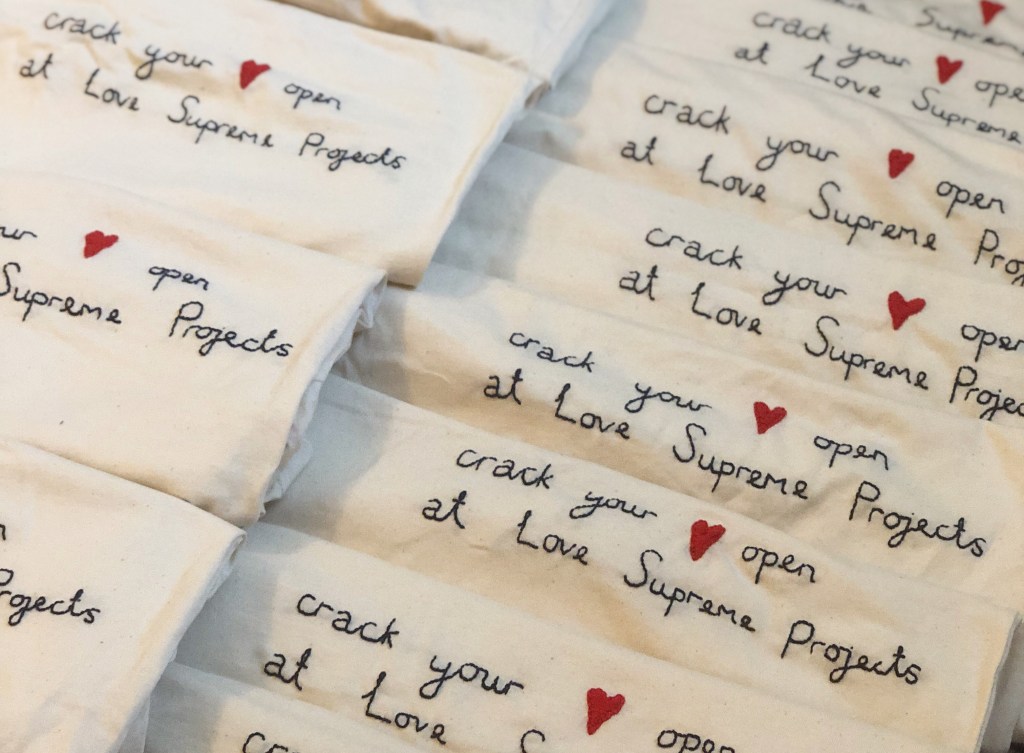 crack your ❤ open
at Love Supreme Projects
ur ❤ open
Supreme Projects
Projects
Supreme
crack your ❤ ope
at Love Supreme
crack your ❤ open
at Love Supreme Proj
crack your ❤ open
at Love Supreme Projec
crack your ❤ open
at Love Supreme Projects
crack your ❤ open
at Love Supreme Projects
crack your ❤ open
at Love S
crac